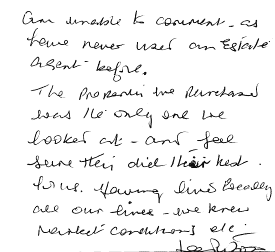 Am unable to comment - as
have never used an Estate
Agent before.
The property we purchased
was the only one we
looked at - and feel
sure they did their best
for us. Having lived
all our lives - we knew
market conditions etc.